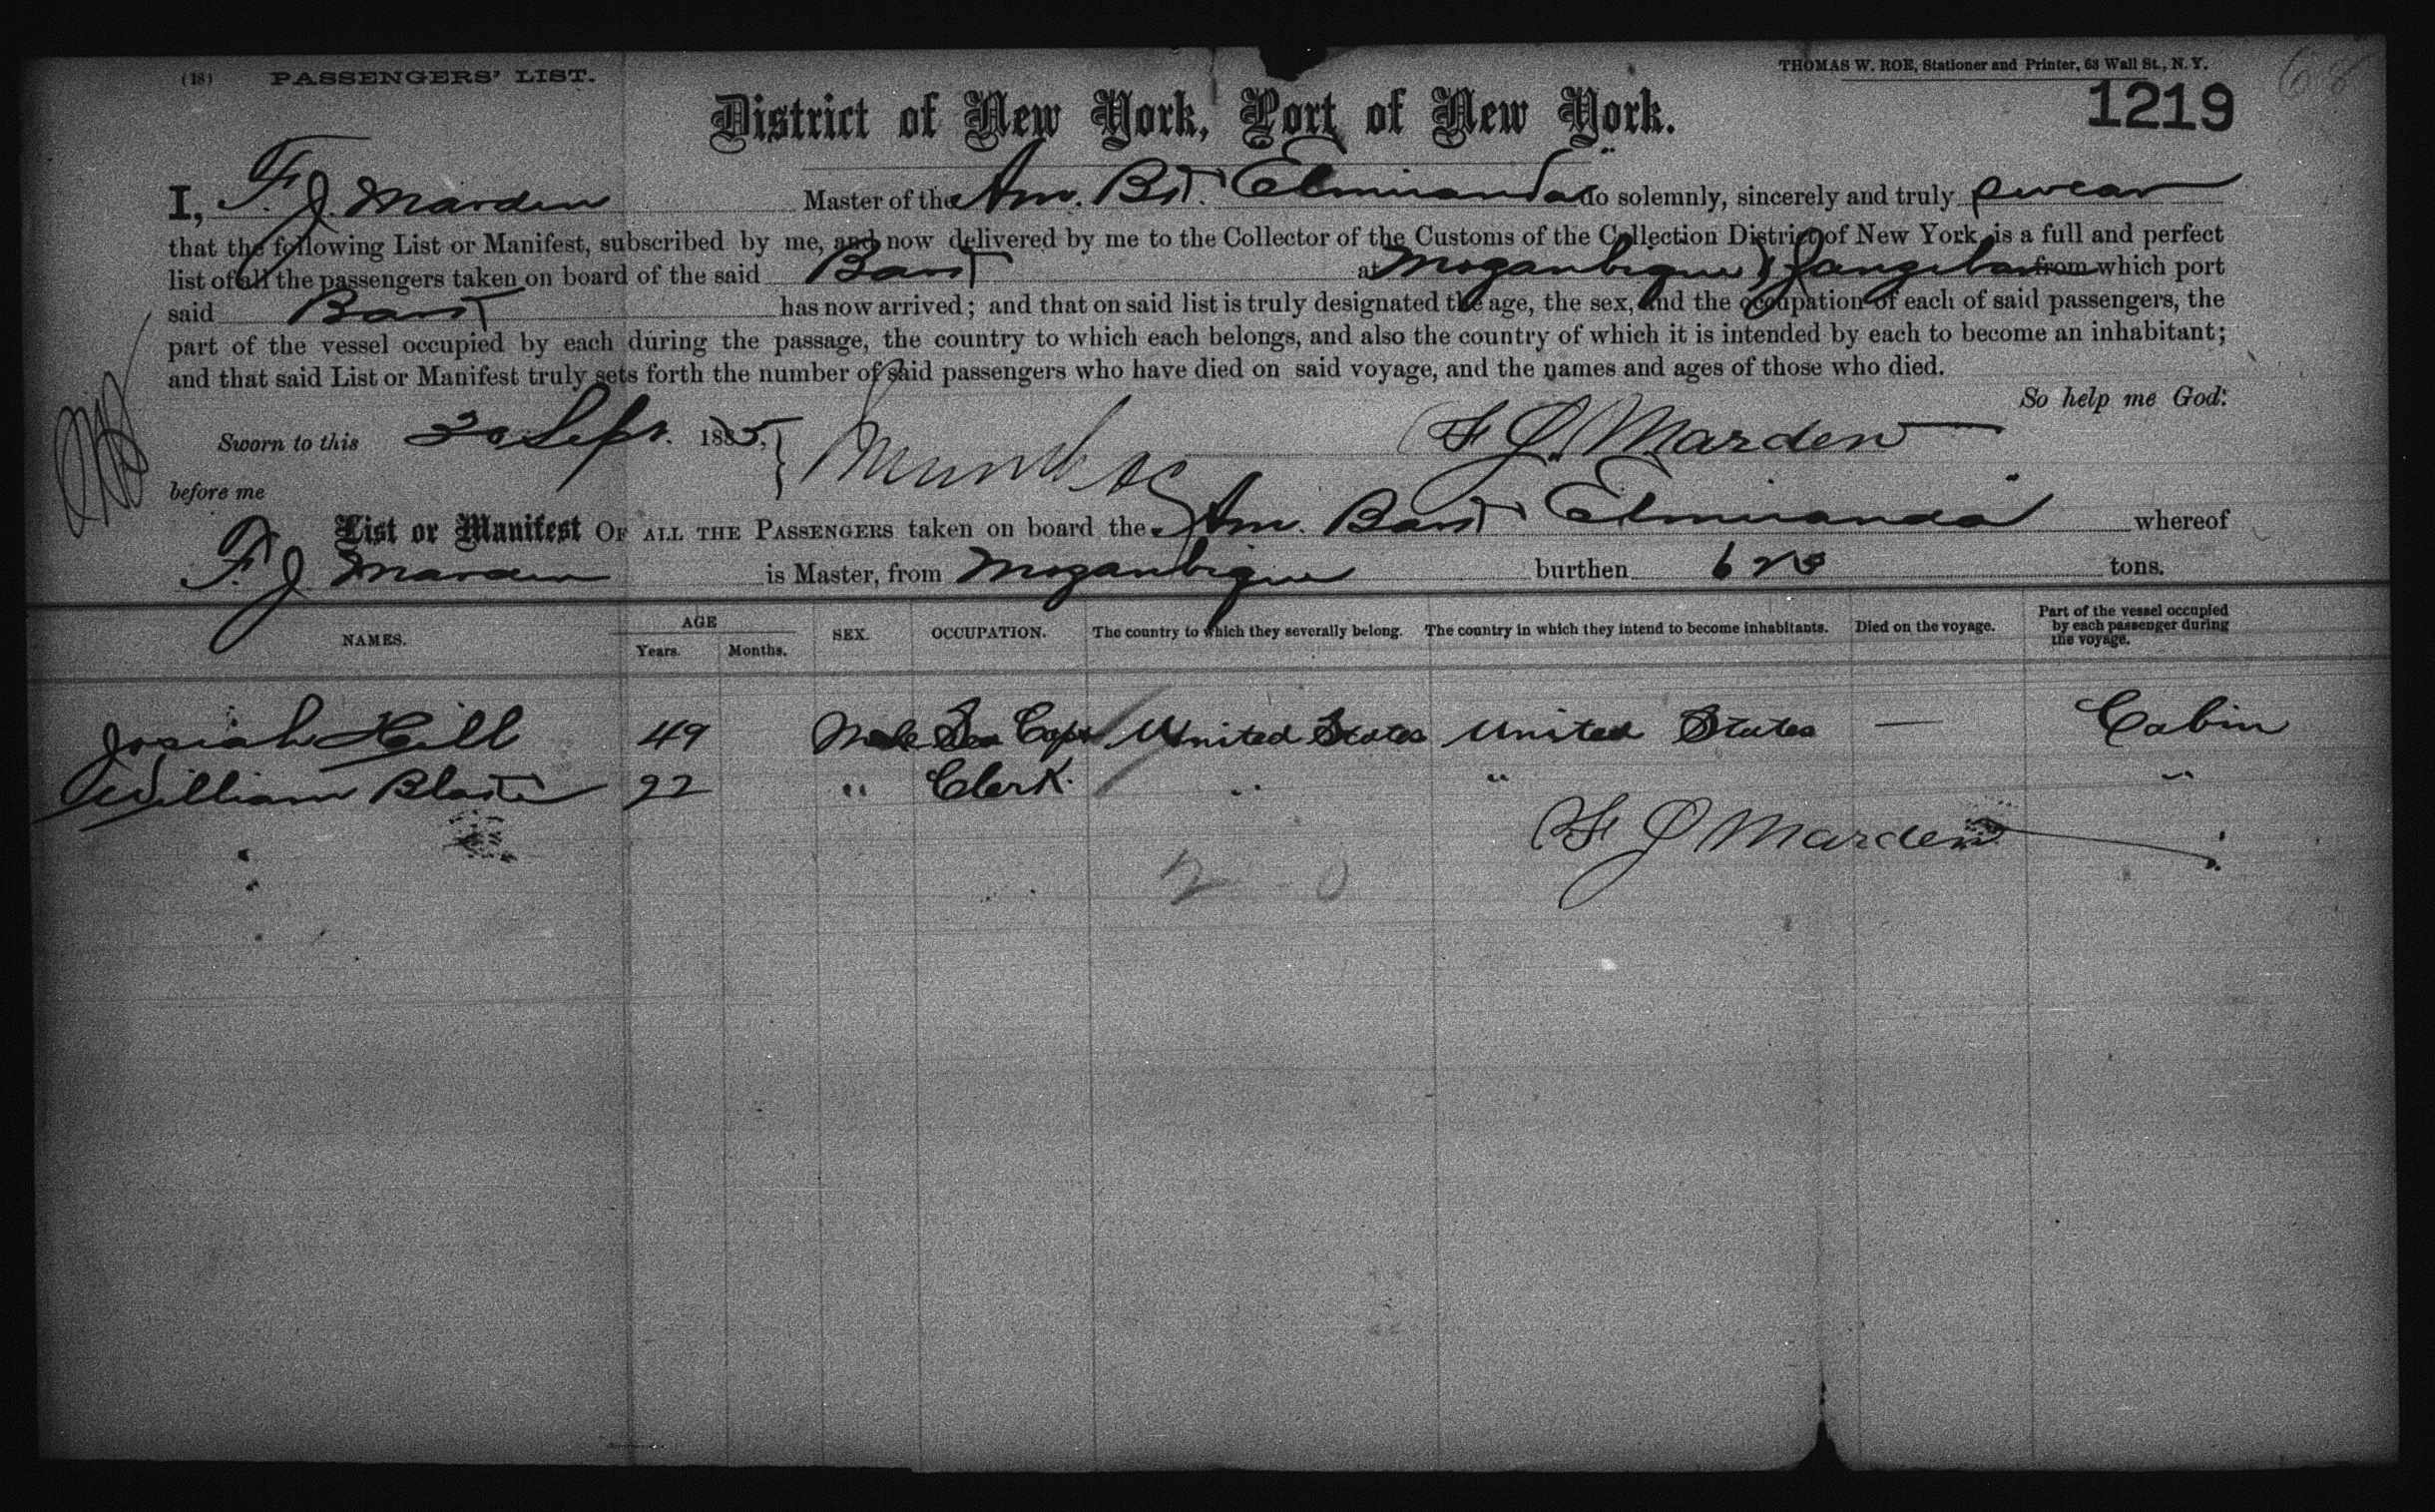 (18) PASSENGERS' LIST.
THOMAS W. ROE, Stationer and Printer, 63 Wall St., N. Y.
68
1219
District of New York, Port of New York.
I, F. J. Marden Master of the Am. Bk. "Elmiranda" do solemnly, sincerely and truly swear
that the following List or Manifest, subscribed by me, and now delivered by me to the Collector of the Customs of the Collection District of New York, is a full and perfect
list of all the passengers taken on board of the said Bark at Mozambique & Zanzibar from which port
said Bark has now arrived; and that on said list is truly designated the age, the sex, and the occupation of each of said passengers, the
part of the vessel occupied by each during the passage, the country to which each belongs, and also the country of which it is intended by each to become an inhabitant;
and that said List or Manifest truly sets forth the number of said passengers who have died on said voyage, and the names and ages of those who died.
So help me God:
Sworn to this Sept. 1885,
F J Marden
before me
List or Manifest OF ALL THE PASSENGERS taken on board the Am. Bark "Elmiranda" whereof
F. J Marden is Master, from Mozambique burthen tons.
NAMES. AGE Years. Months. SEX. OCCUPATION. The country to which they severally belong. The country in which they intend to become inhabitants. Died on the voyage. Part of the vessel occupied by each passenger during the voyage.
Josiah Hill 49 Male Sea Capt United States United States — Cabin
William 22 " Clerk. " " "
F J Marden
2 - 0